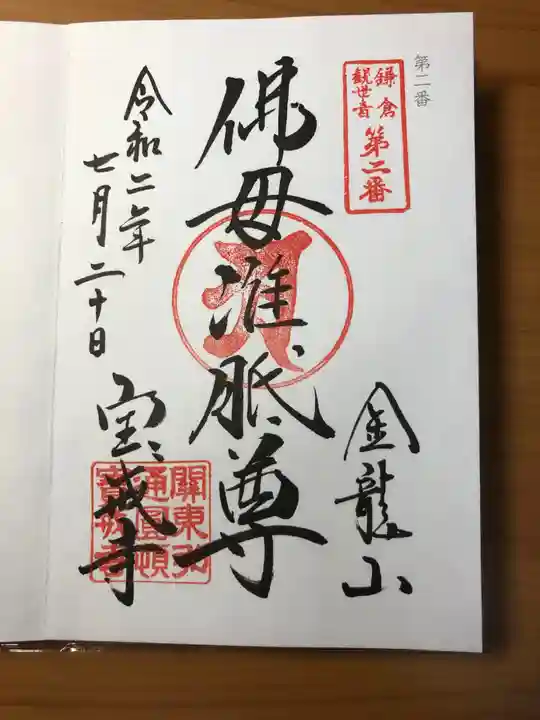 第二番
鎌倉
観世音
第二番
金龍山
佛母准胝尊
令和二年
七月二十日
宝戒寺
關東弘
通圓頓
寳戒寺